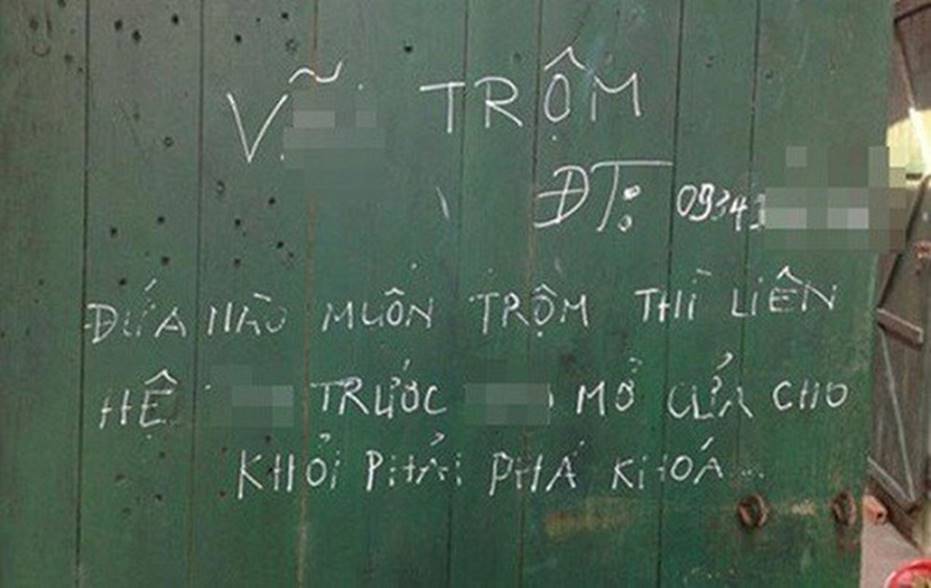 TRỘM
ĐT: 0934
ĐỨA NÀO MUỐN TRỘM THÌ LIÊN
HỆ TRƯỚC MỞ CỬA CHO
KHỎI PHẢI PHÁ KHOÁ...